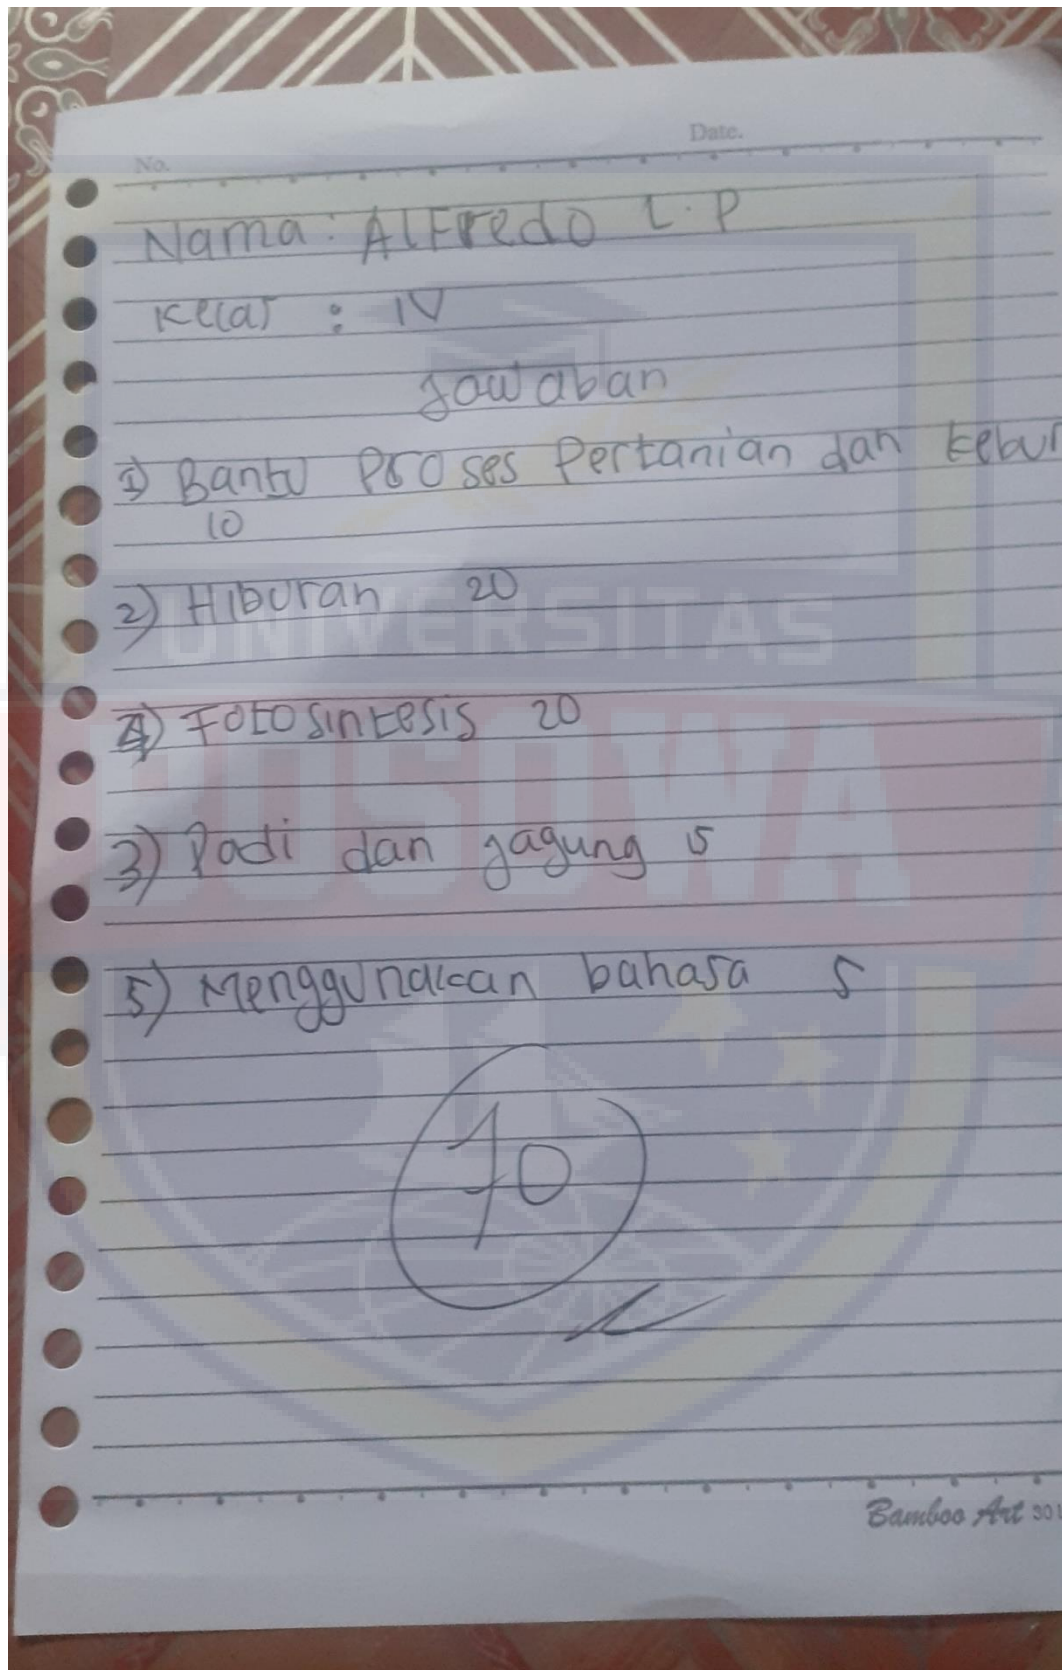 No.
Date.
Nama : Alfredo L.P
Kelas : IV
Jawaban
1) Bantu Proses Pertanian dan kebun
10
2) Hiburan 20
4) Fotosintesis 20
3) Padi dan jagung 15
5) Menggunakan bahasa 5
70
Bamboo Art 30
UNIVERSITAS
BOSOWA